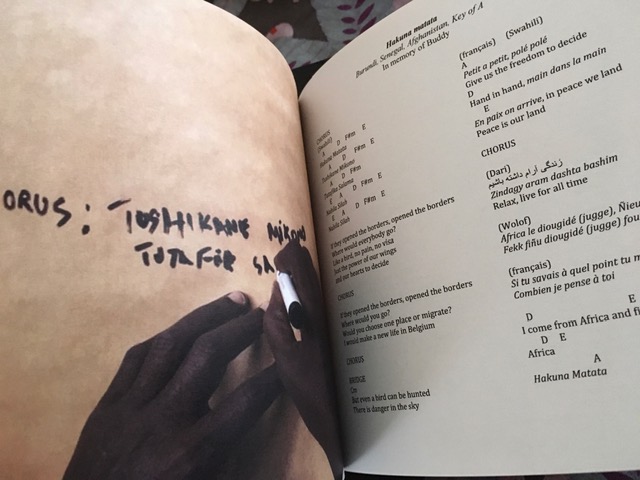 ORUS: TUSHIKANE MIKONO
TUTAFIK
Hakuna matata
Burundi, Senegal, Afghanistan, Key of A
In memory of Buddy
CHORUS
(Swahili)
A D F#m E
Hakuna Matata
A D F#m E
Tushikane Mikono
A D F#m E
Tutafika Salama
E A D F#m E
Hakika Silah
E A D F#m E
Hakika Silah
If they opened the borders, opened the borders
Where would everybody go?
Like a bird, no pain, no visa
Just the power of our wings
and our hearts to decide
CHORUS
If they opened the borders, opened the borders
Where would you go?
Would you choose one place or migrate?
I would make a new life in Belgium
CHORUS
BRIDGE
But even a bird can be hunted
There is danger in the sky
(français) (Swahili)
A
Petit a petit, polé polé
Give us the freedom to decide
D
Hand in hand, main dans la main
E
En paix on arrive, in peace we land
Peace is our land
CHORUS
(Dari)
زندگی آرام داشته باشیم
Zindagy aram dashta bashim
Relax, live for all time
(Wolof)
Africa le diougidé (jugge), Ñieu
Fekk fiñu diougidé (jugge) fou
(français)
Si tu savais à quel point tu m
Combien je pense à toi
D E
I come from Africa and fi
D E
Africa
A
Hakuna Matata